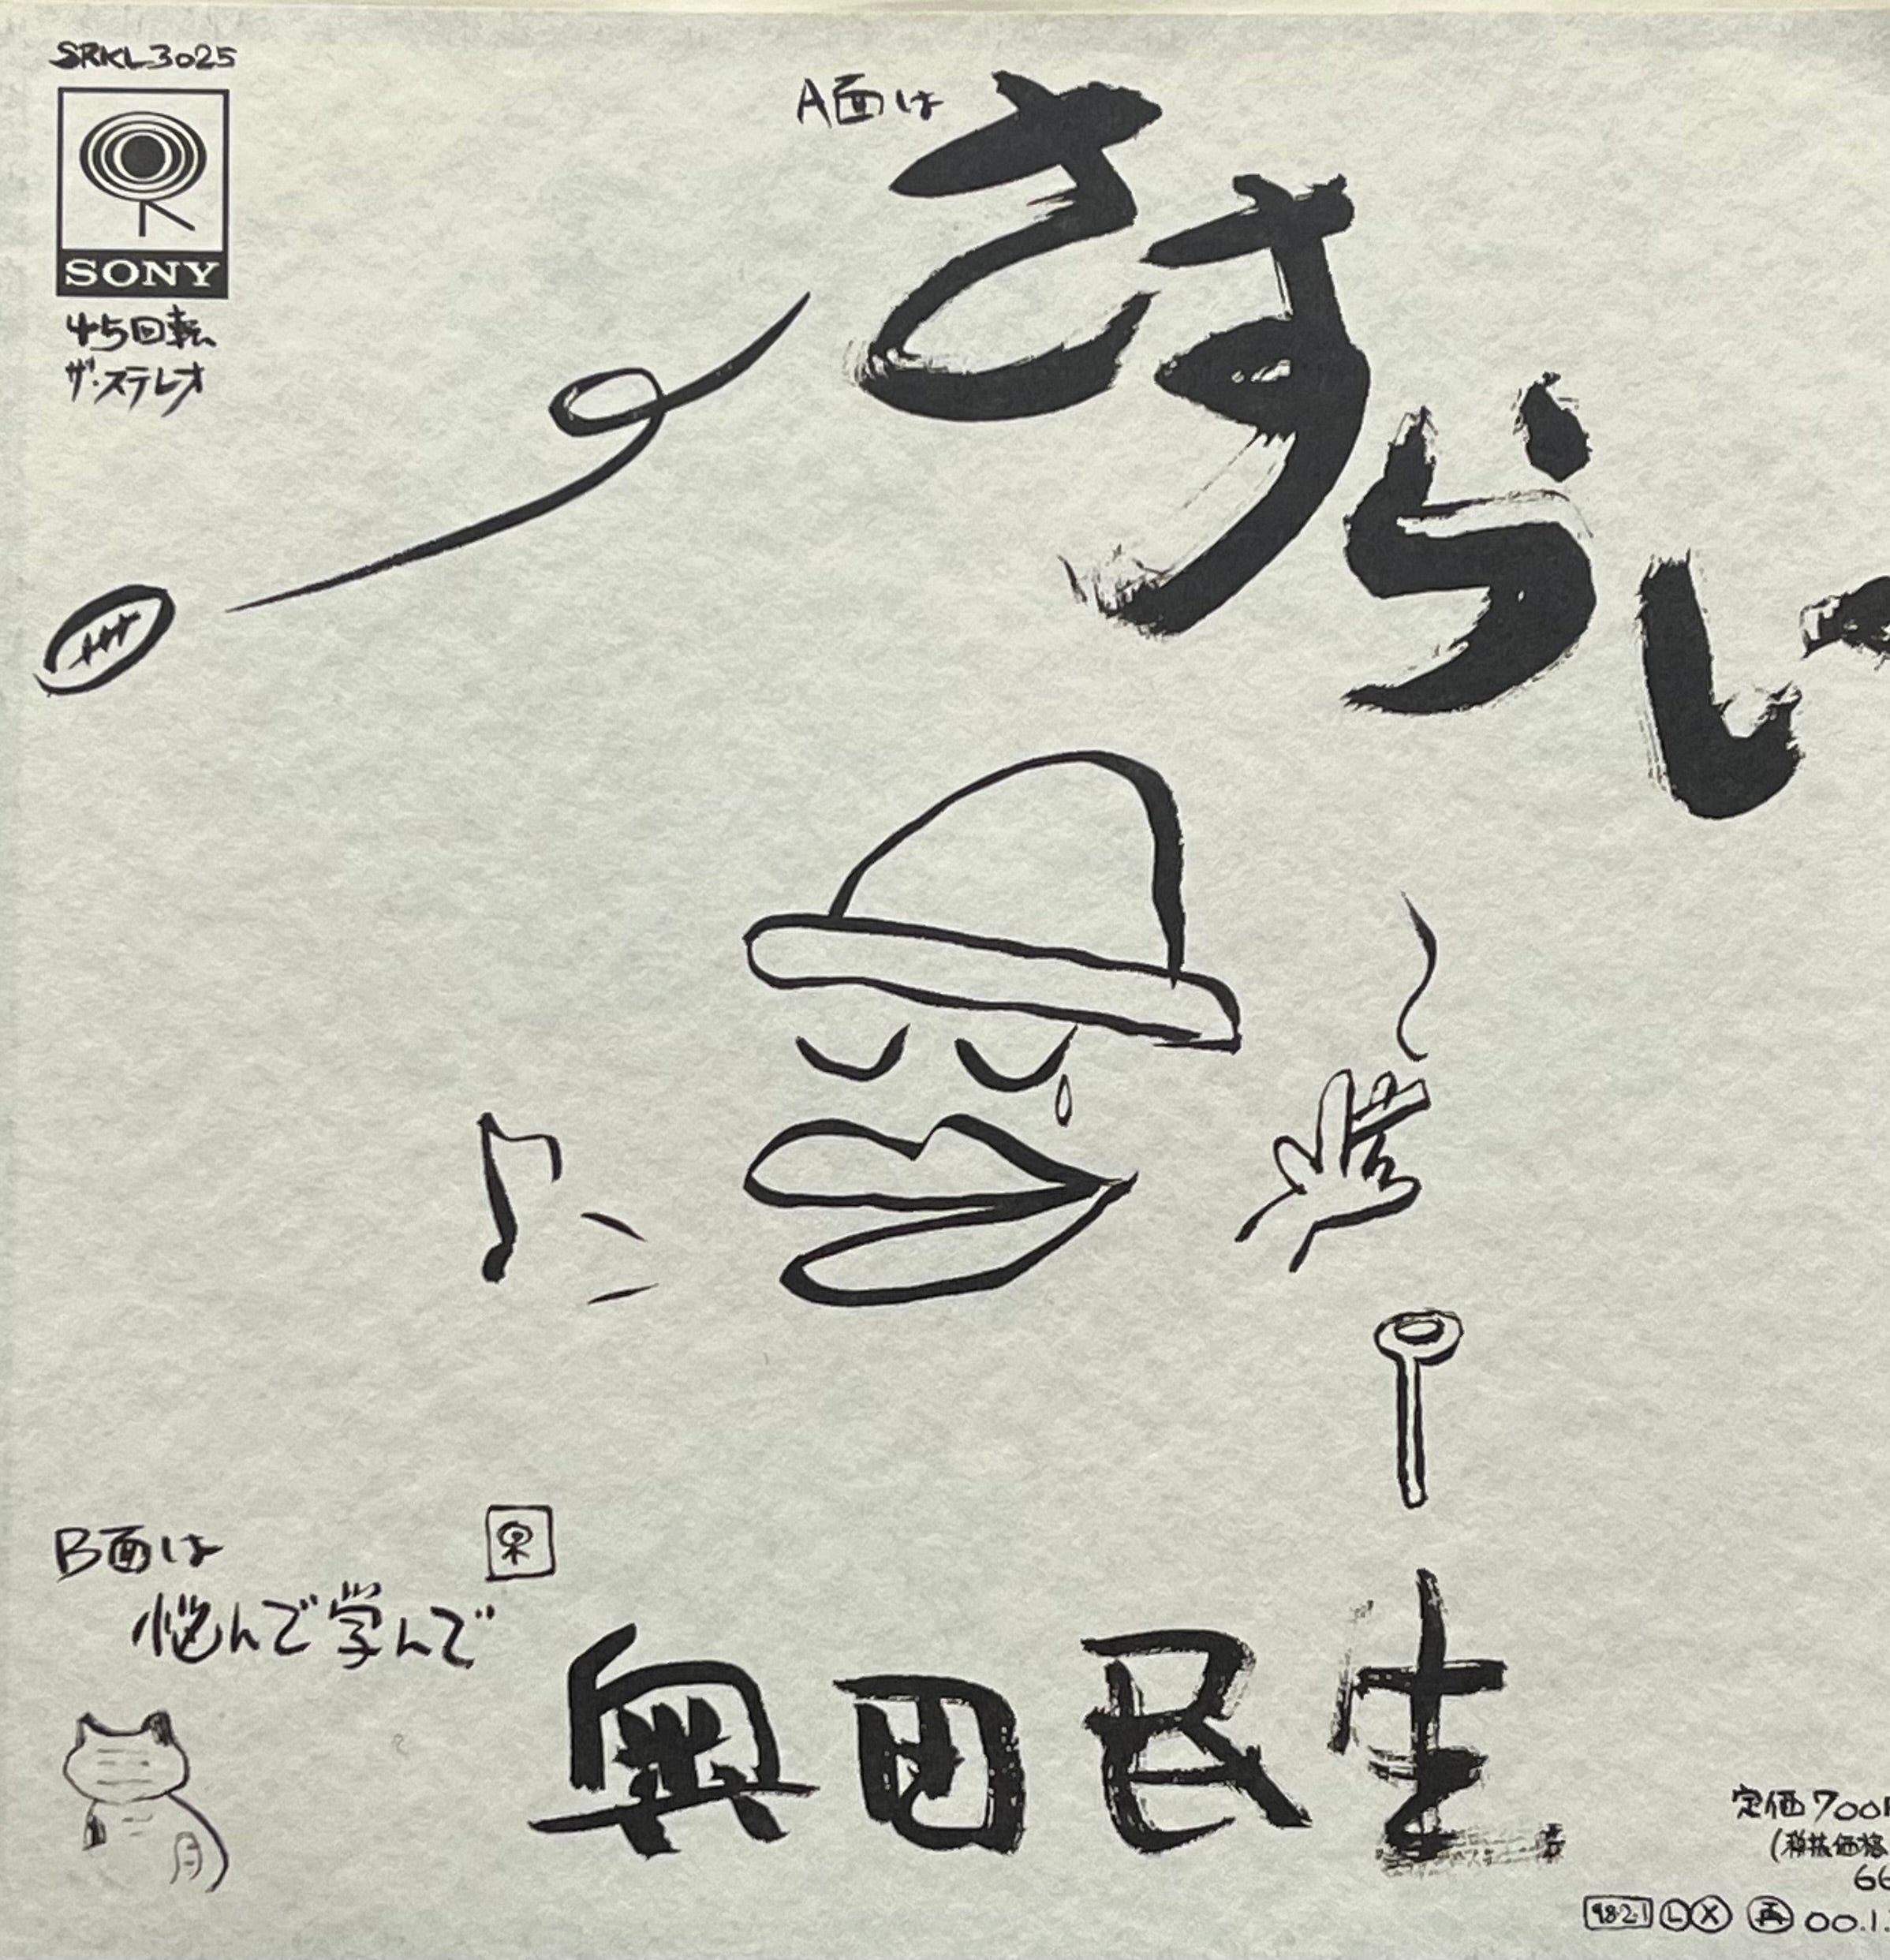 SRKL3025
SONY
45回転
ザ・ステレオ
A面は
さすらい
B面は
悩んで学んで
奥田民生
定価700
(税抜価格
66
98・2・1 L X 再 00.1.